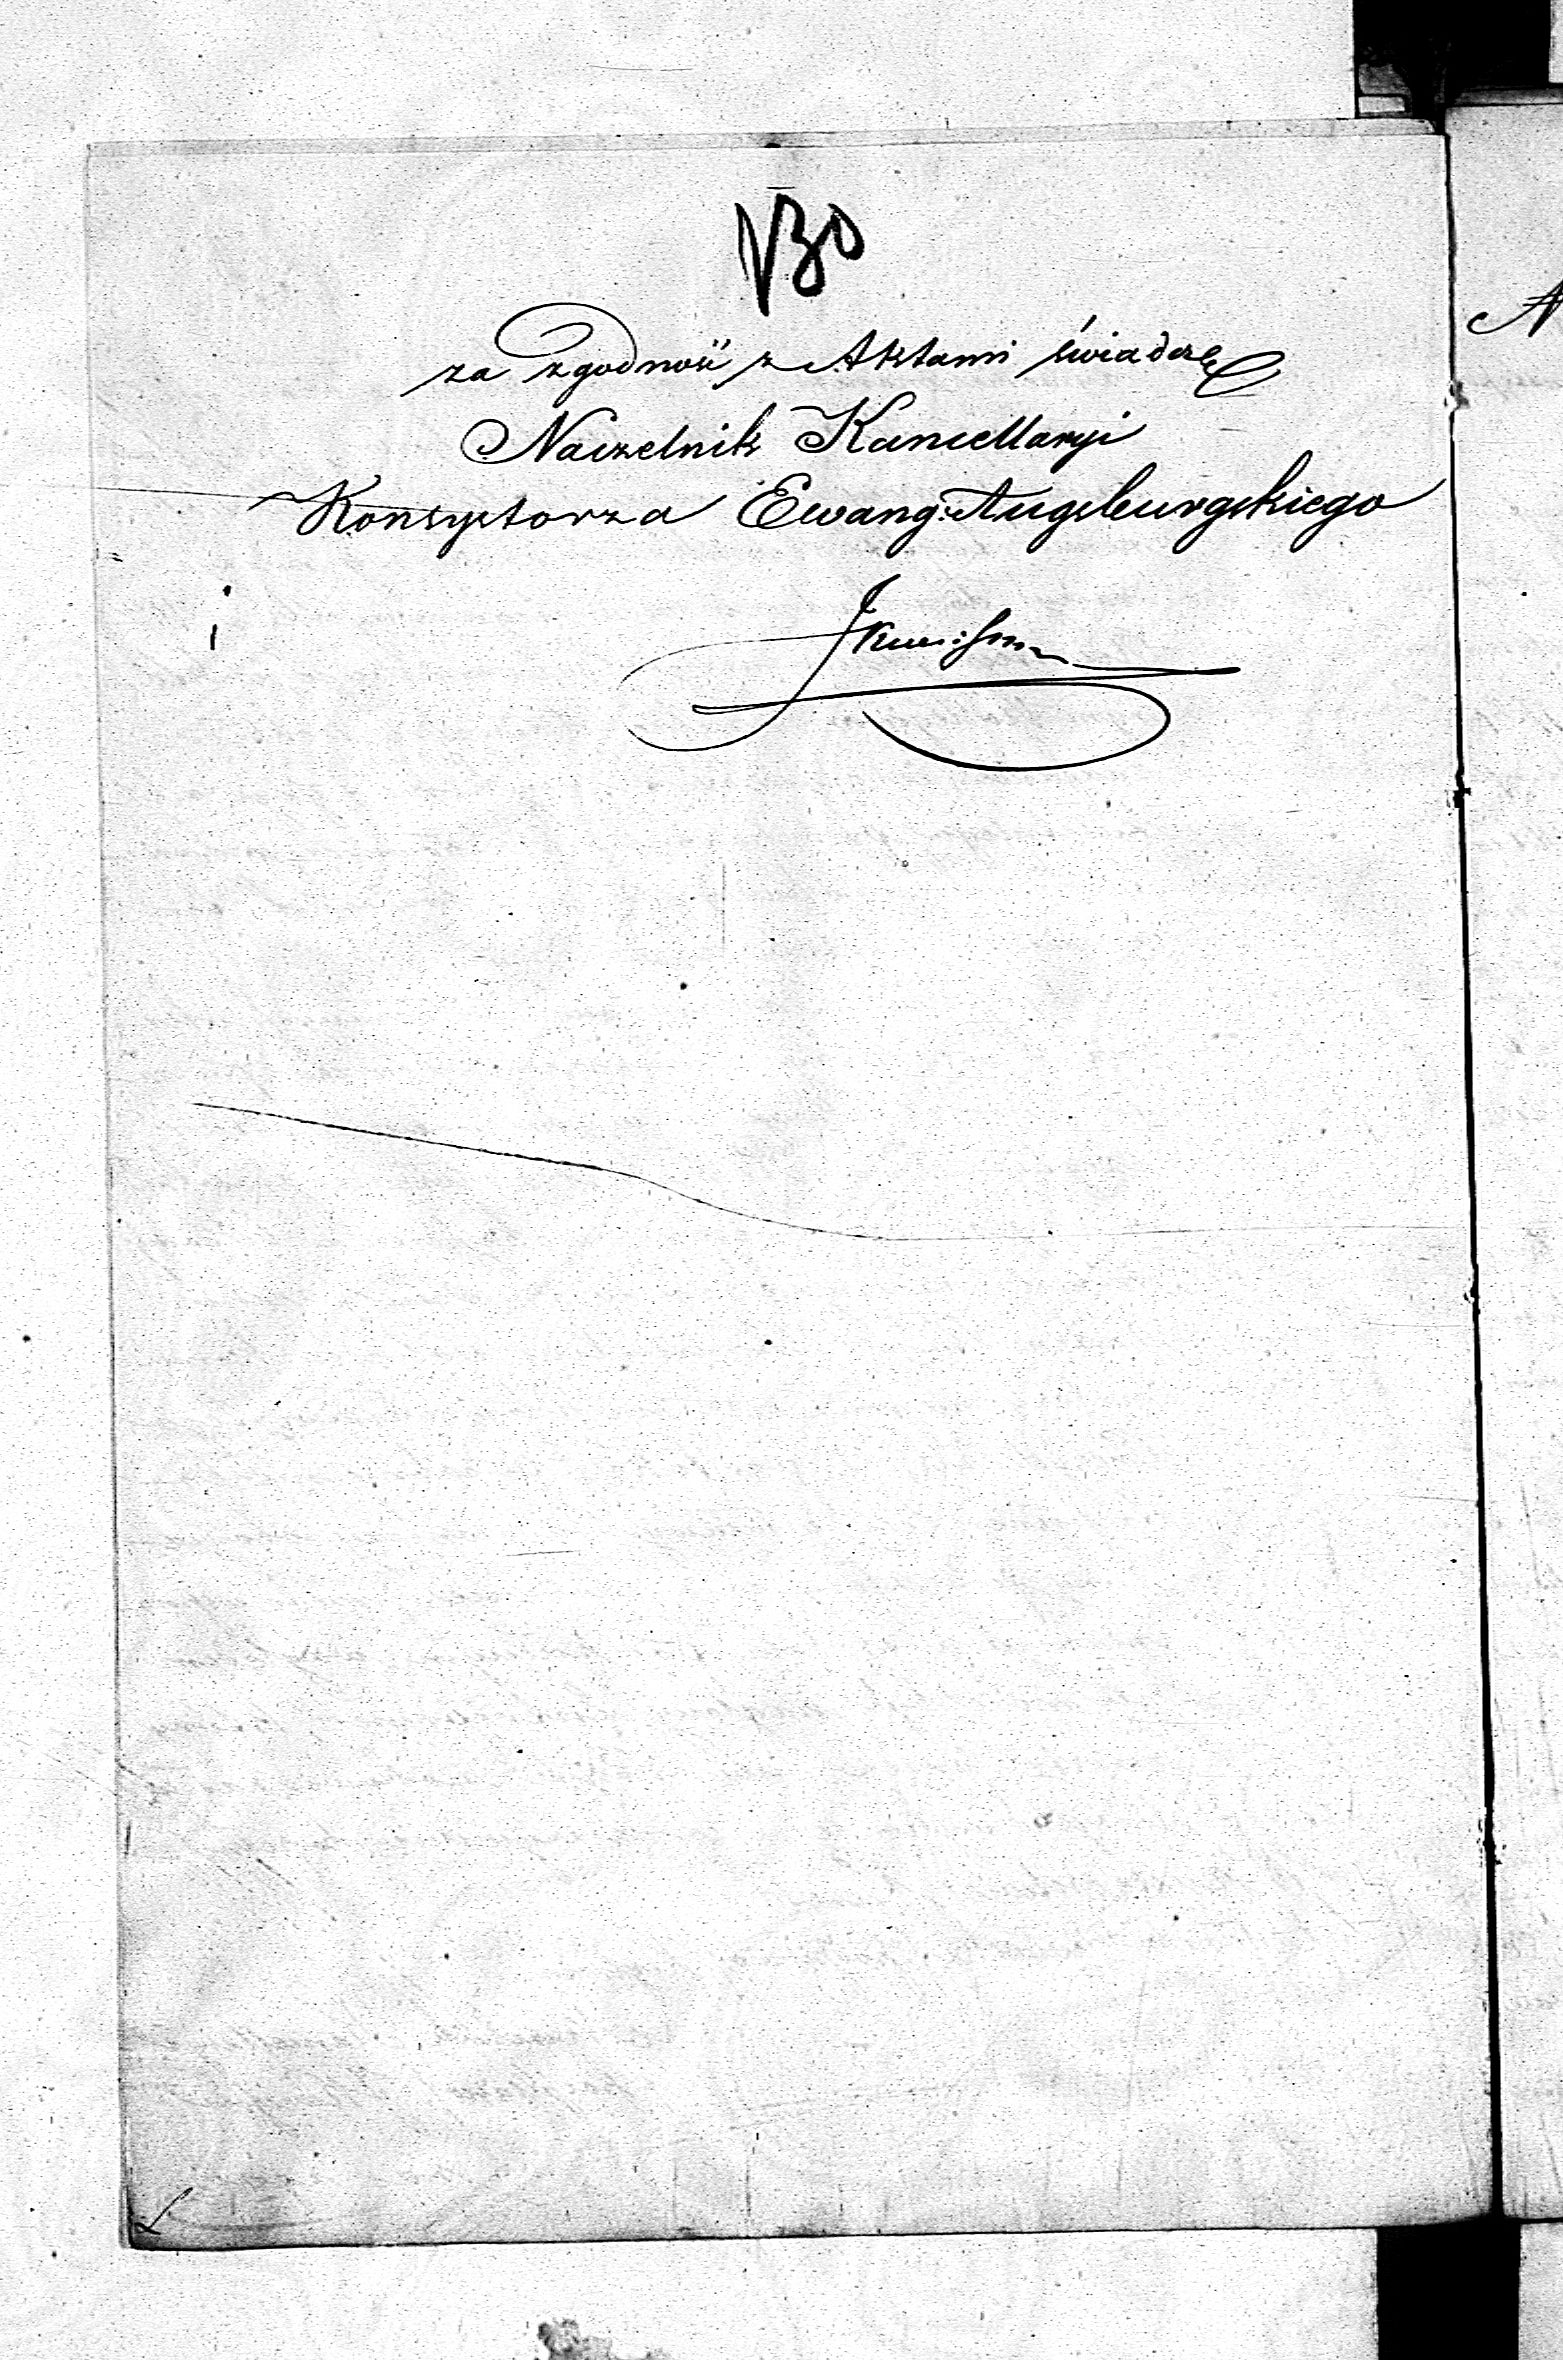 za zgodność z Aktami świadczę
Naczelnik Kancellaryi
Konsystorza Ewang: Augsburgskiego